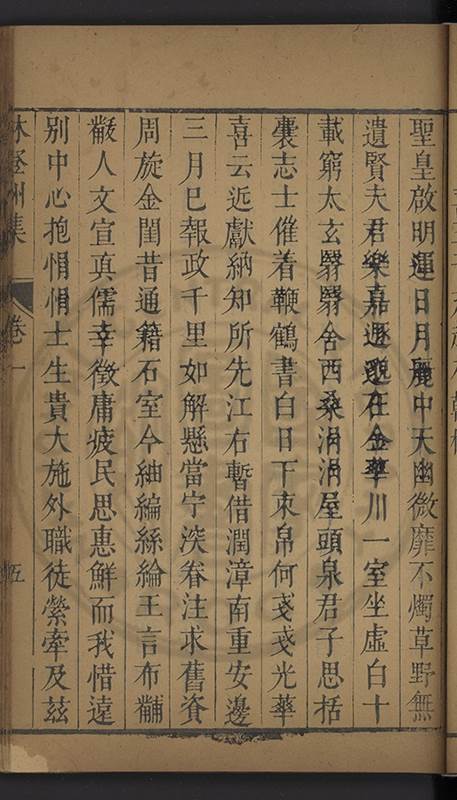 聖皇啟明運日月麗中天幽微靡不燭草野無
遺賢夫君樂嘉遯遯在金華川一室坐虛白十
載窮太玄翳翳舍西桑涓涓屋頭泉君子思括
囊志士倦着鞭鶴書白日下束帛何戔戔光華
喜云近獻納知所先江右暫借潤漳南重安邊
三月巳報政千里如解懸當宁深眷注求舊資
周旋金閨昔通籍石室今紬編絲綸王言布黼
黻人文宣真儒幸徵庸疲民思惠鮮而我惜遠
別中心抱悁悁士生貴大施外職徒縈牽及茲
林登州集 卷一 五